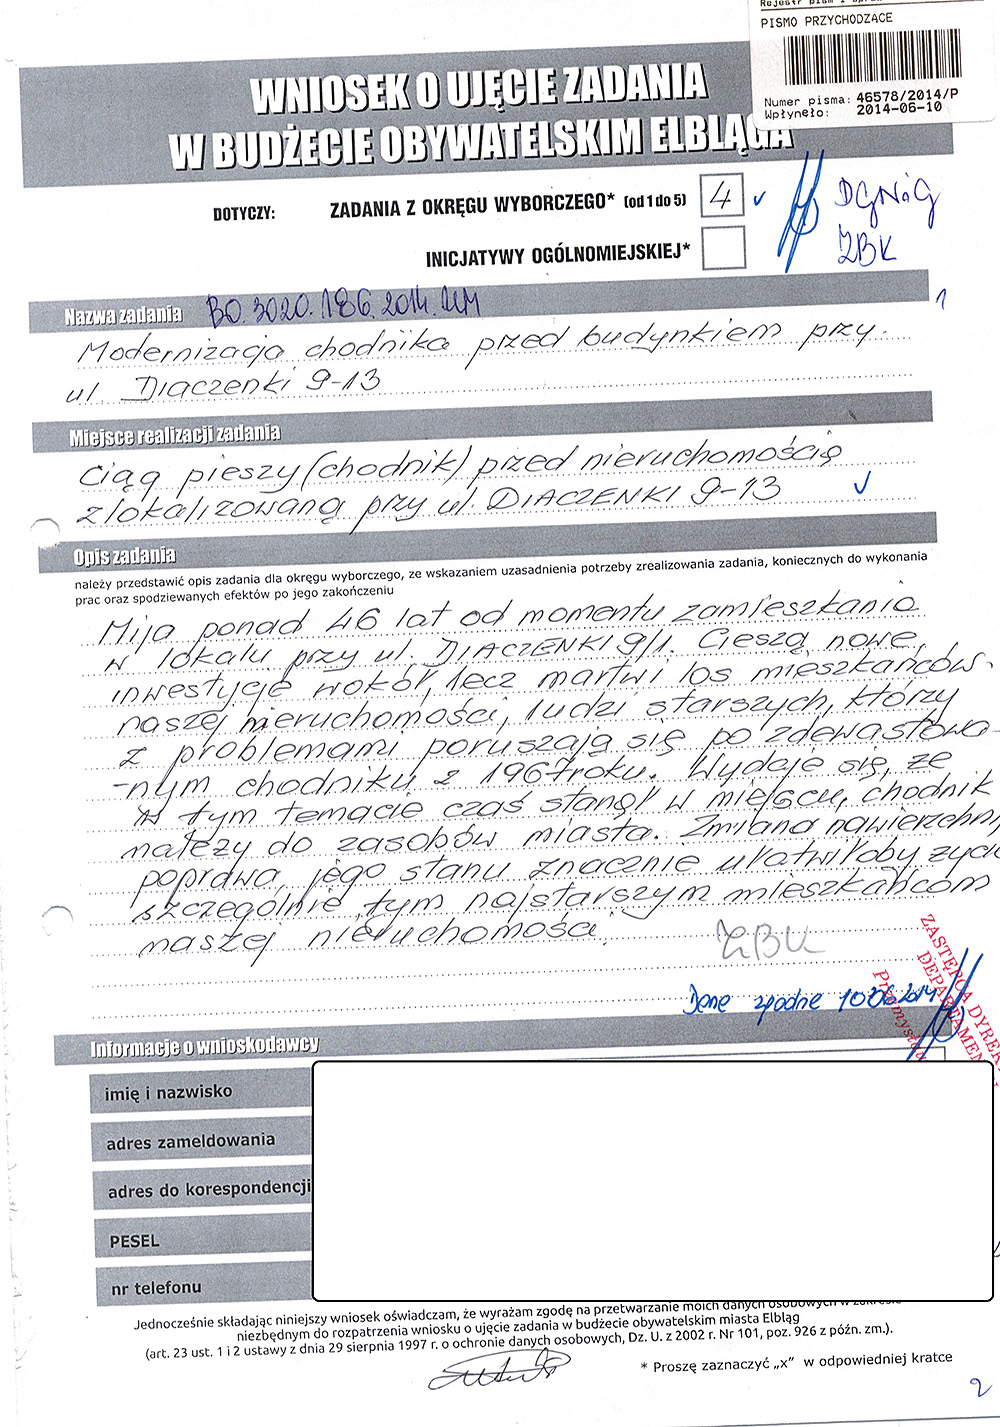 PISMO PRZYCHODZĄCE
Numer pisma: 46578/2014/P
Wpłynęło: 2014-06-10
WNIOSEK O UJĘCIE ZADANIA
W BUDŻECIE OBYWATELSKIM ELBLĄGA
DOTYCZY: ZADANIA Z OKRĘGU WYBORCZEGO* (od 1 do 5) 4
DGNiG
INICJATYWY OGÓLNOMIEJSKIEJ*
ZBK
Nazwa zadania BO.3020.186.2014.UM
1
Modernizacja chodnika przed budynkiem przy
ul. Diaczenki 9-13
Miejsce realizacji zadania
Ciąg pieszy (chodnik) przed nieruchomością
zlokalizowaną przy ul. DIACZENKI 9-13
Opis zadania
należy przedstawić opis zadania dla okręgu wyborczego, ze wskazaniem uzasadnienia potrzeby zrealizowania zadania, koniecznych do wykonania
prac oraz spodziewanych efektów po jego zakończeniu
Mija ponad 46 lat od momentu zamieszkania
w lokalu przy ul. DIACZENKI 9/1. Cieszą nowe,
inwestycje wokół, lecz martwi los mieszkańców
naszej nieruchomości, ludzi starszych, którzy
z problemami poruszają się po zdewastowa-
-nym chodniku z 1967 roku. Wydaje się, że
w tym temacie czas stanął w miejscu, chodnik
należy do zasobów miasta. Zmiana nawierzchni,
poprawa jego stanu znacznie ułatwiłoby życie
szczególnie tym najstarszym mieszkańcom
naszej nieruchomości.
ZBK
Dane zgodne 10.06.2014
ZASTĘPCA DYREK
DEPARTAMEN
Przemysław
Informacje o wnioskodawcy
imię i nazwisko
adres zameldowania
adres do korespondencji
PESEL
nr telefonu
Jednocześnie składając niniejszy wniosek oświadczam, że wyrażam zgodę na przetwarzanie moich danych osobowych w zakresie
niezbędnym do rozpatrzenia wniosku o ujęcie zadania w budżecie obywatelskim miasta Elbląg
(art. 23 ust. 1 i 2 ustawy z dnia 29 sierpnia 1997 r. o ochronie danych osobowych, Dz. U. z 2002 r. Nr 101, poz. 926 z późn. zm.).
* Proszę zaznaczyć „x" w odpowiedniej kratce
2